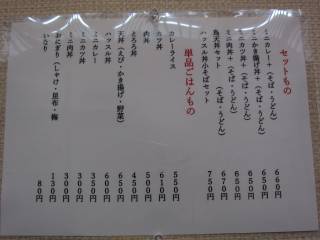 セットもの
ミニカレー+(そば・うどん) 660円
ミニかき揚げ丼+(そば・うどん) 650円
ミニカツ丼+(そば・うどん) 650円
ミニ肉丼+(そば・うどん) 650円
鳥天丼セット(そば・うどん) 670円
ハッスル丼小そばセット 750円
単品ごはんもの
カレーライス 550円
カツ丼 610円
肉丼 500円
とろろ丼 450円
天丼(えび・かき揚げ・野菜) 650円
ハッスル丼 600円
ミニカレー 350円
ミニカツ丼 300円
ミニ肉丼 300円
おにぎり(しゃけ・昆布・梅) 130円
いなり 80円